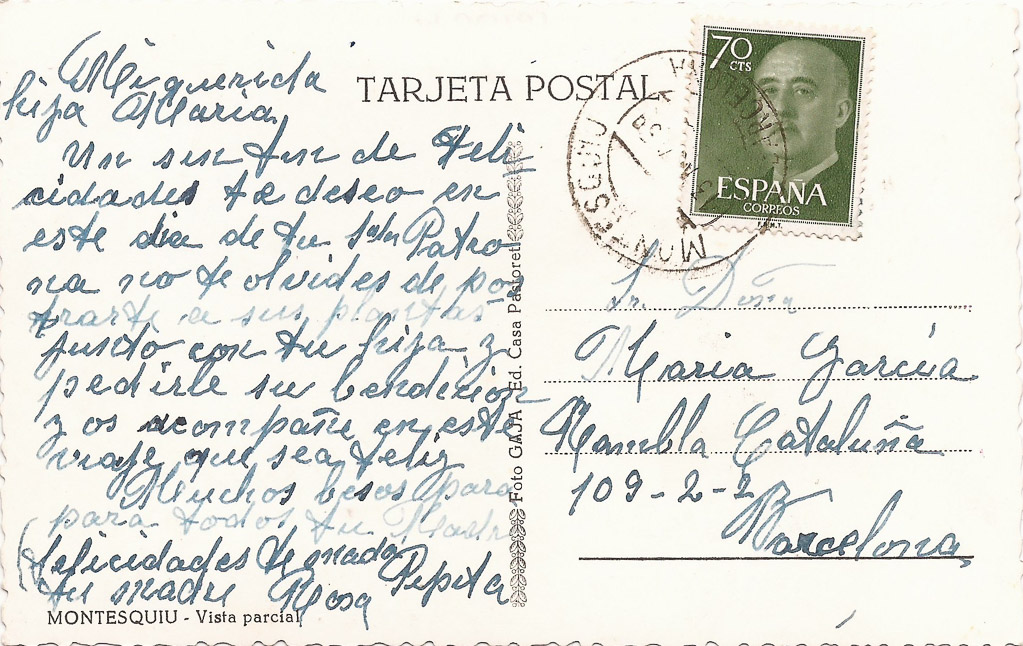 Mi querida
hija Maria
Un sin fin de Feli
cidades te deseo en
este dia de tu Santa Patro
na no te olvides de pos
trarte a sus plantas
junto con tu hija y
pedirle su bendicion
y os acompañe en este
viaje que sea feliz
Muchos besos para
para todos tu Madre
felicidades de
tu madre Rosa Pepita
MONTESQUIU - Vista parcial
TARJETA POSTAL
Foto GAJA Ed. Casa Pastoret
70 CTS
ESPAÑA
CORREOS
F.N.M.T.
MONTESQUIU
BARCELONA
Sra. Doña
Maria Garcia
Rambla Cataluña
109-2-2ª
Barcelona